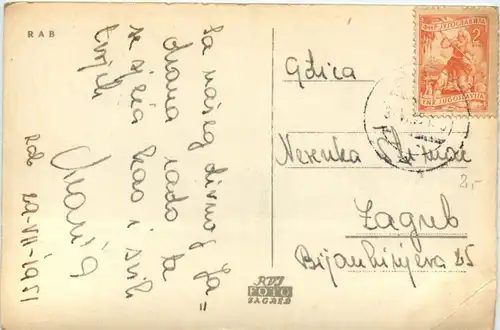 RAB
Sa našeg divnog Ja=
drana rado te
se sjeća kao i svih
tvojih
Marija
Rab 29-VII-1951
Gđica
Nevenka
Zagreb
Bijankinijeva 25
2,-
FNR JUGOSLAVIJA 2
FNR JUGOSLAVIJA
FOTO
ZAGREB